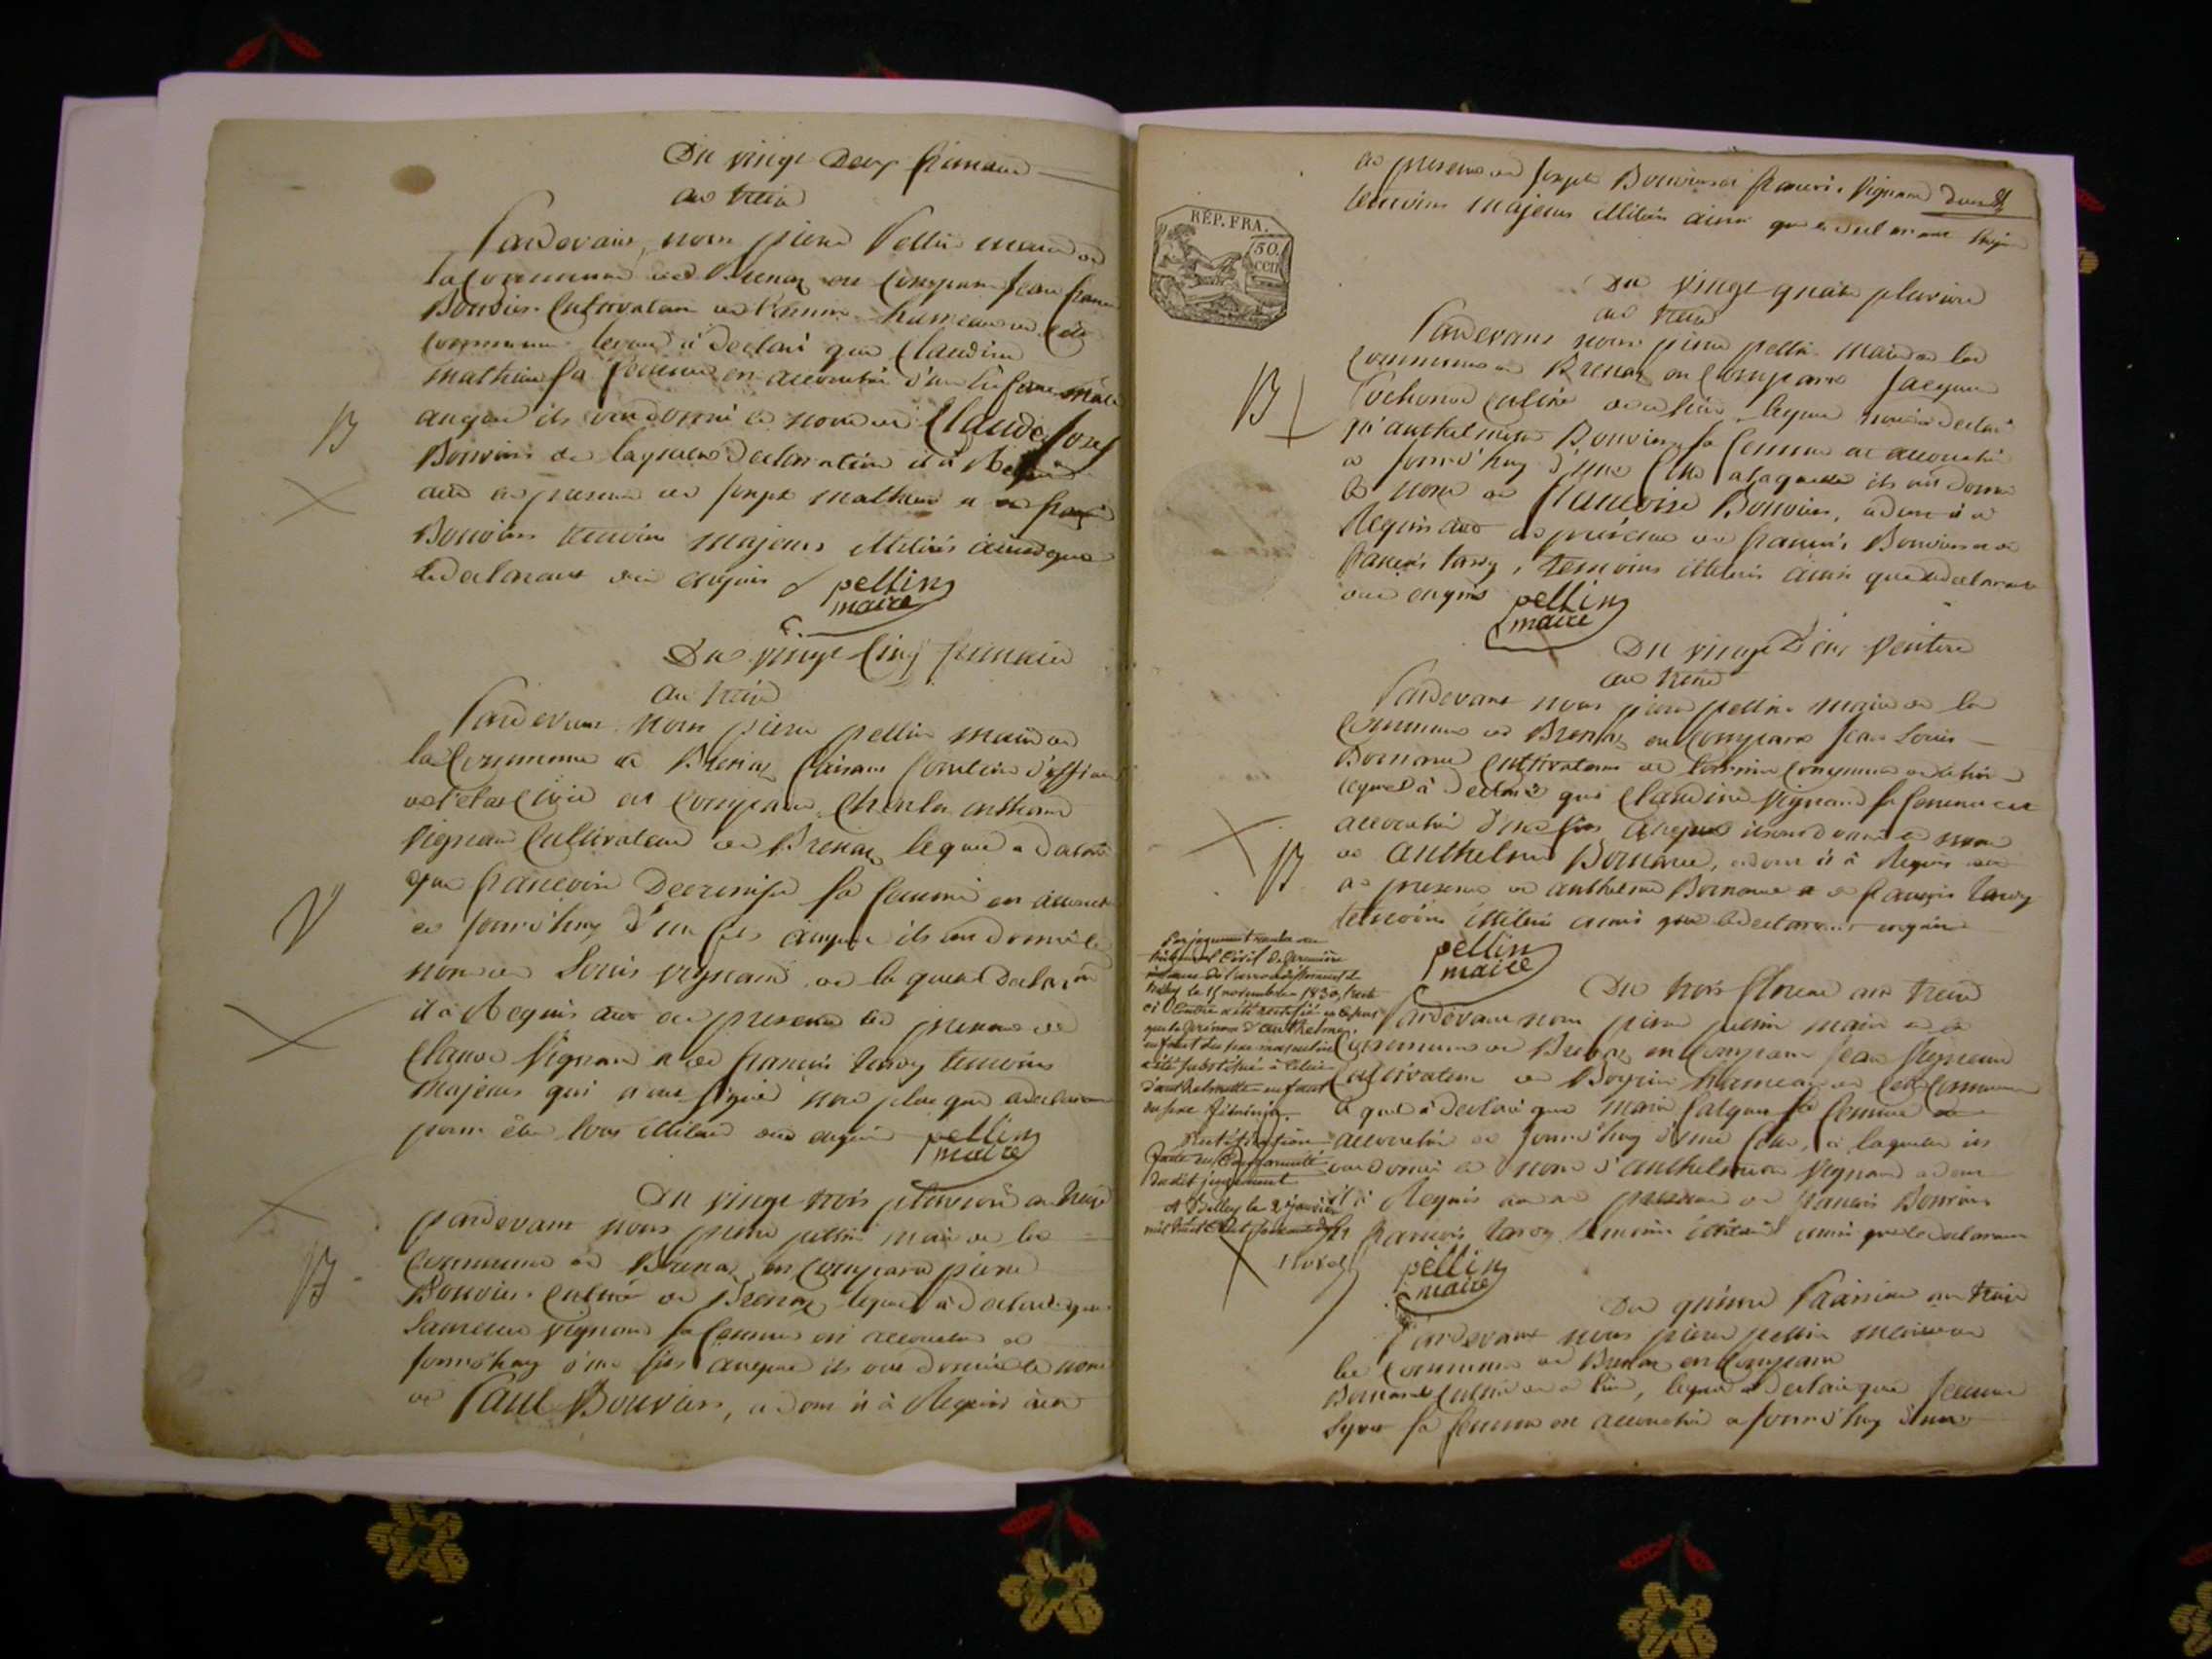 Du vingt deux frimaire
an treize
Pardevant nous pierre Pellin maire de
la commune de Brenaz est comparu Jean françois
Bouvier Cultivateur de hameau de cette
commune lequel à declaré que Claudine
Mathieu sa femme est accouchée d'un enfant male
auquel ils ont donné le nom de Claude Josef
B
Bouvier de laquelle declaration il à Requis
acte en presence de Joseph Mathieu et de françois
Bouvier temoins majeurs illitérés ainsi que
le declarant de ce enquis
pellin
maire
Du vingt cinq frimaire
an treize
Pardevant nous pierre pellin maire de
la Commune de Brenaz faisant fonction d'officier
de l'etat Civil est comparu Charles anthelme
Vignand Cultivateur de Brenaz lequel a declaré
que francoise sa femme est accouchée
V
ce jourd'huy d'un fils auquel ils ont donné le
nom de Louis vignand de laquelle declaration
il à Requis acte en presence de
Claude Vignand et de francois tardy temoins
majeurs qui n'ont signé non plus que le declarant
pour être tous illitérés de ce enquis
pellin
maire
Du vingt trois pluviose an treize
pardevant nous pierre pellin maire de la
Commune de Brenaz est comparu pierre
B
Bouvier Cultivateur de Brenaz lequel à declaré que
vignand sa femme est accouchée ce
jourd'huy d'un fils auquel ils ont donné le nom
de Paul Bouvier, et dont il à Requis acte
en presence de Joseph Bouvier et francois Vignand
temoins majeurs illitérés ainsi que le declarant
RÉP. FRA.
50
cen
Du vingt quatre pluviose
an treize
Pardevant nous pierre pellin maire de la
commune de Brenaz est comparu Jacques
B
lequel nous à declaré
qu'anthelmette Bouvier sa femme est accouchée
ce jourd'huy d'une fille a laquelle ils ont donné
le nom de francoise Bouvier, et dont il a
Requis acte en présence de francois Bouvier et de
francois tardy, temoins illitérés ainsi que le declarant
de ce enquis
pellin
maire
Du vingt deux Ventose
an treize
Pardevant nous pierre pellin maire de la
Commune de Brenaz est comparu Jean Louis
Bornarel Cultivateur de commune de
lequel à declaré que Claudine Vignand sa femme est
accouchée d'un fils auquel ils ont donné le nom
B
de Anthelme Bornarel, et dont il à Requis acte
en presence de anthelme Bornarel et de francois tardy
temoins illitérés ainsi que le declarant enquis
pellin
maire
Par jugement rendu au
tribunal Civil de première
instance de l'arrondissement de
Belley le 15 novembre 1830, l'acte
ci contre a été rectifié en ce sens
que le prénom d'anthelme
enfant du sexe masculin
a été substitué à celui
d'anthelmette enfant
du sexe féminin.
Rectification
faite en Conformité
dudit jugement
A Belley le 2 janvier
Du trois floreal an treize
Pardevant nous pierre pellin maire de la
Commune de Brenaz est comparu Jean Vignand
Cultivateur de hameau de cette Commune
lequel à declaré que marie sa femme est
accouchée ce jourd'huy d'une fille, à laquelle ils
ont donné le nom d'anthelmette Vignand et dont
il à Requis acte en presence de francois Bouvier
et francois tardy temoins illitérés ainsi que le declarant
pellin
maire
Du quinze Prairial an treize
Pardevant nous pierre pellin maire de
la Commune de Brenaz est comparu
Bornarel lequel a declaré que
sa femme est accouchée ce jourd'huy d'une